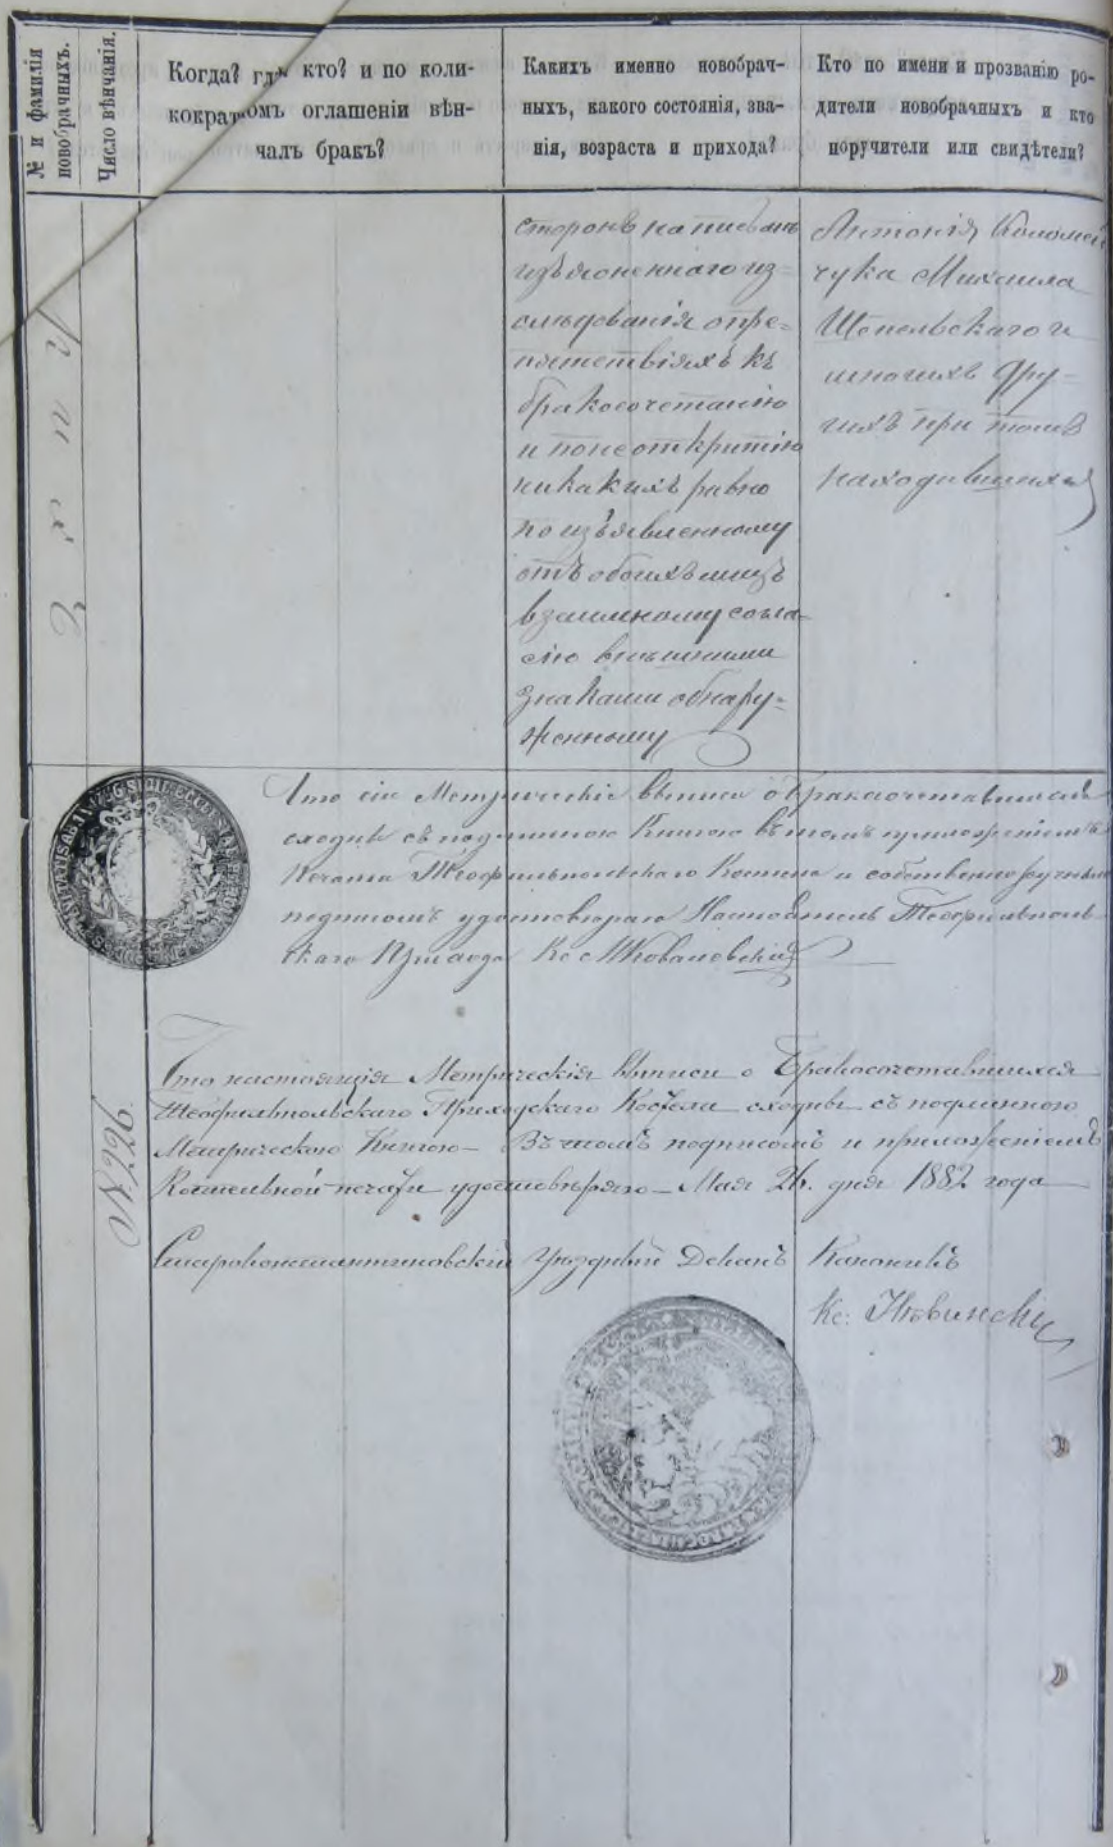 № и фамилія
новобрачныхъ.
Число вѣнчанія.
Когда? гдѣ кто? и по коли-
кократномъ оглашеніи вѣн-
чалъ бракъ?
Какихъ именно новобрач-
ныхъ, какого состоянія, зва-
нія, возраста и прихода?
Кто по имени и прозванію ро-
дители новобрачныхъ и кто
поручители или свидѣтели?
сторонѣ на письмѣ
изъясненнаго из=
слѣдованія о пре=
пятствіяхъ къ
бракосочетанію
и по не открытію
никакихъ равно
по изъявленному
отъ обоихъ лицъ
взаимному согла-
сію внѣшними
знаками обнару=
женному
Антонія Коломей
чука Михаила
и
многихъ дру=
гихъ при томъ
находившихся
Что сіи Метрическіе выписи о Бракосочетавшихся
сходны съ подлинною Книгою въ томъ приложеніемъ
Печати Теофильпольскаго Костела и собственноручнымъ
подписомъ удостовѣряю Настоятель Теофильполь
скаго Прихода Кс Ковалевскій
Что настоящія Метрическія выписи о Бракосочетавшихся
Теофильпольскаго Приходскаго Костела сходны съ подлинною
Метрическою Книгою – Въ томъ подписомъ и приложеніемъ
Костельной печати удостовѣряю – Мая 26. дня 1882 года
№
Староконстантиновскій Уѣздный Деканъ Каноникъ
Кс: